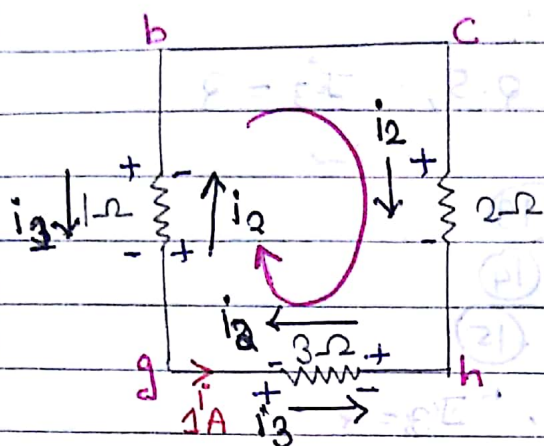 b c
i2
+ - +
i3 1Ω i2 2Ω
- + -
i2
3Ω
- +
g h
i + -
1A i3